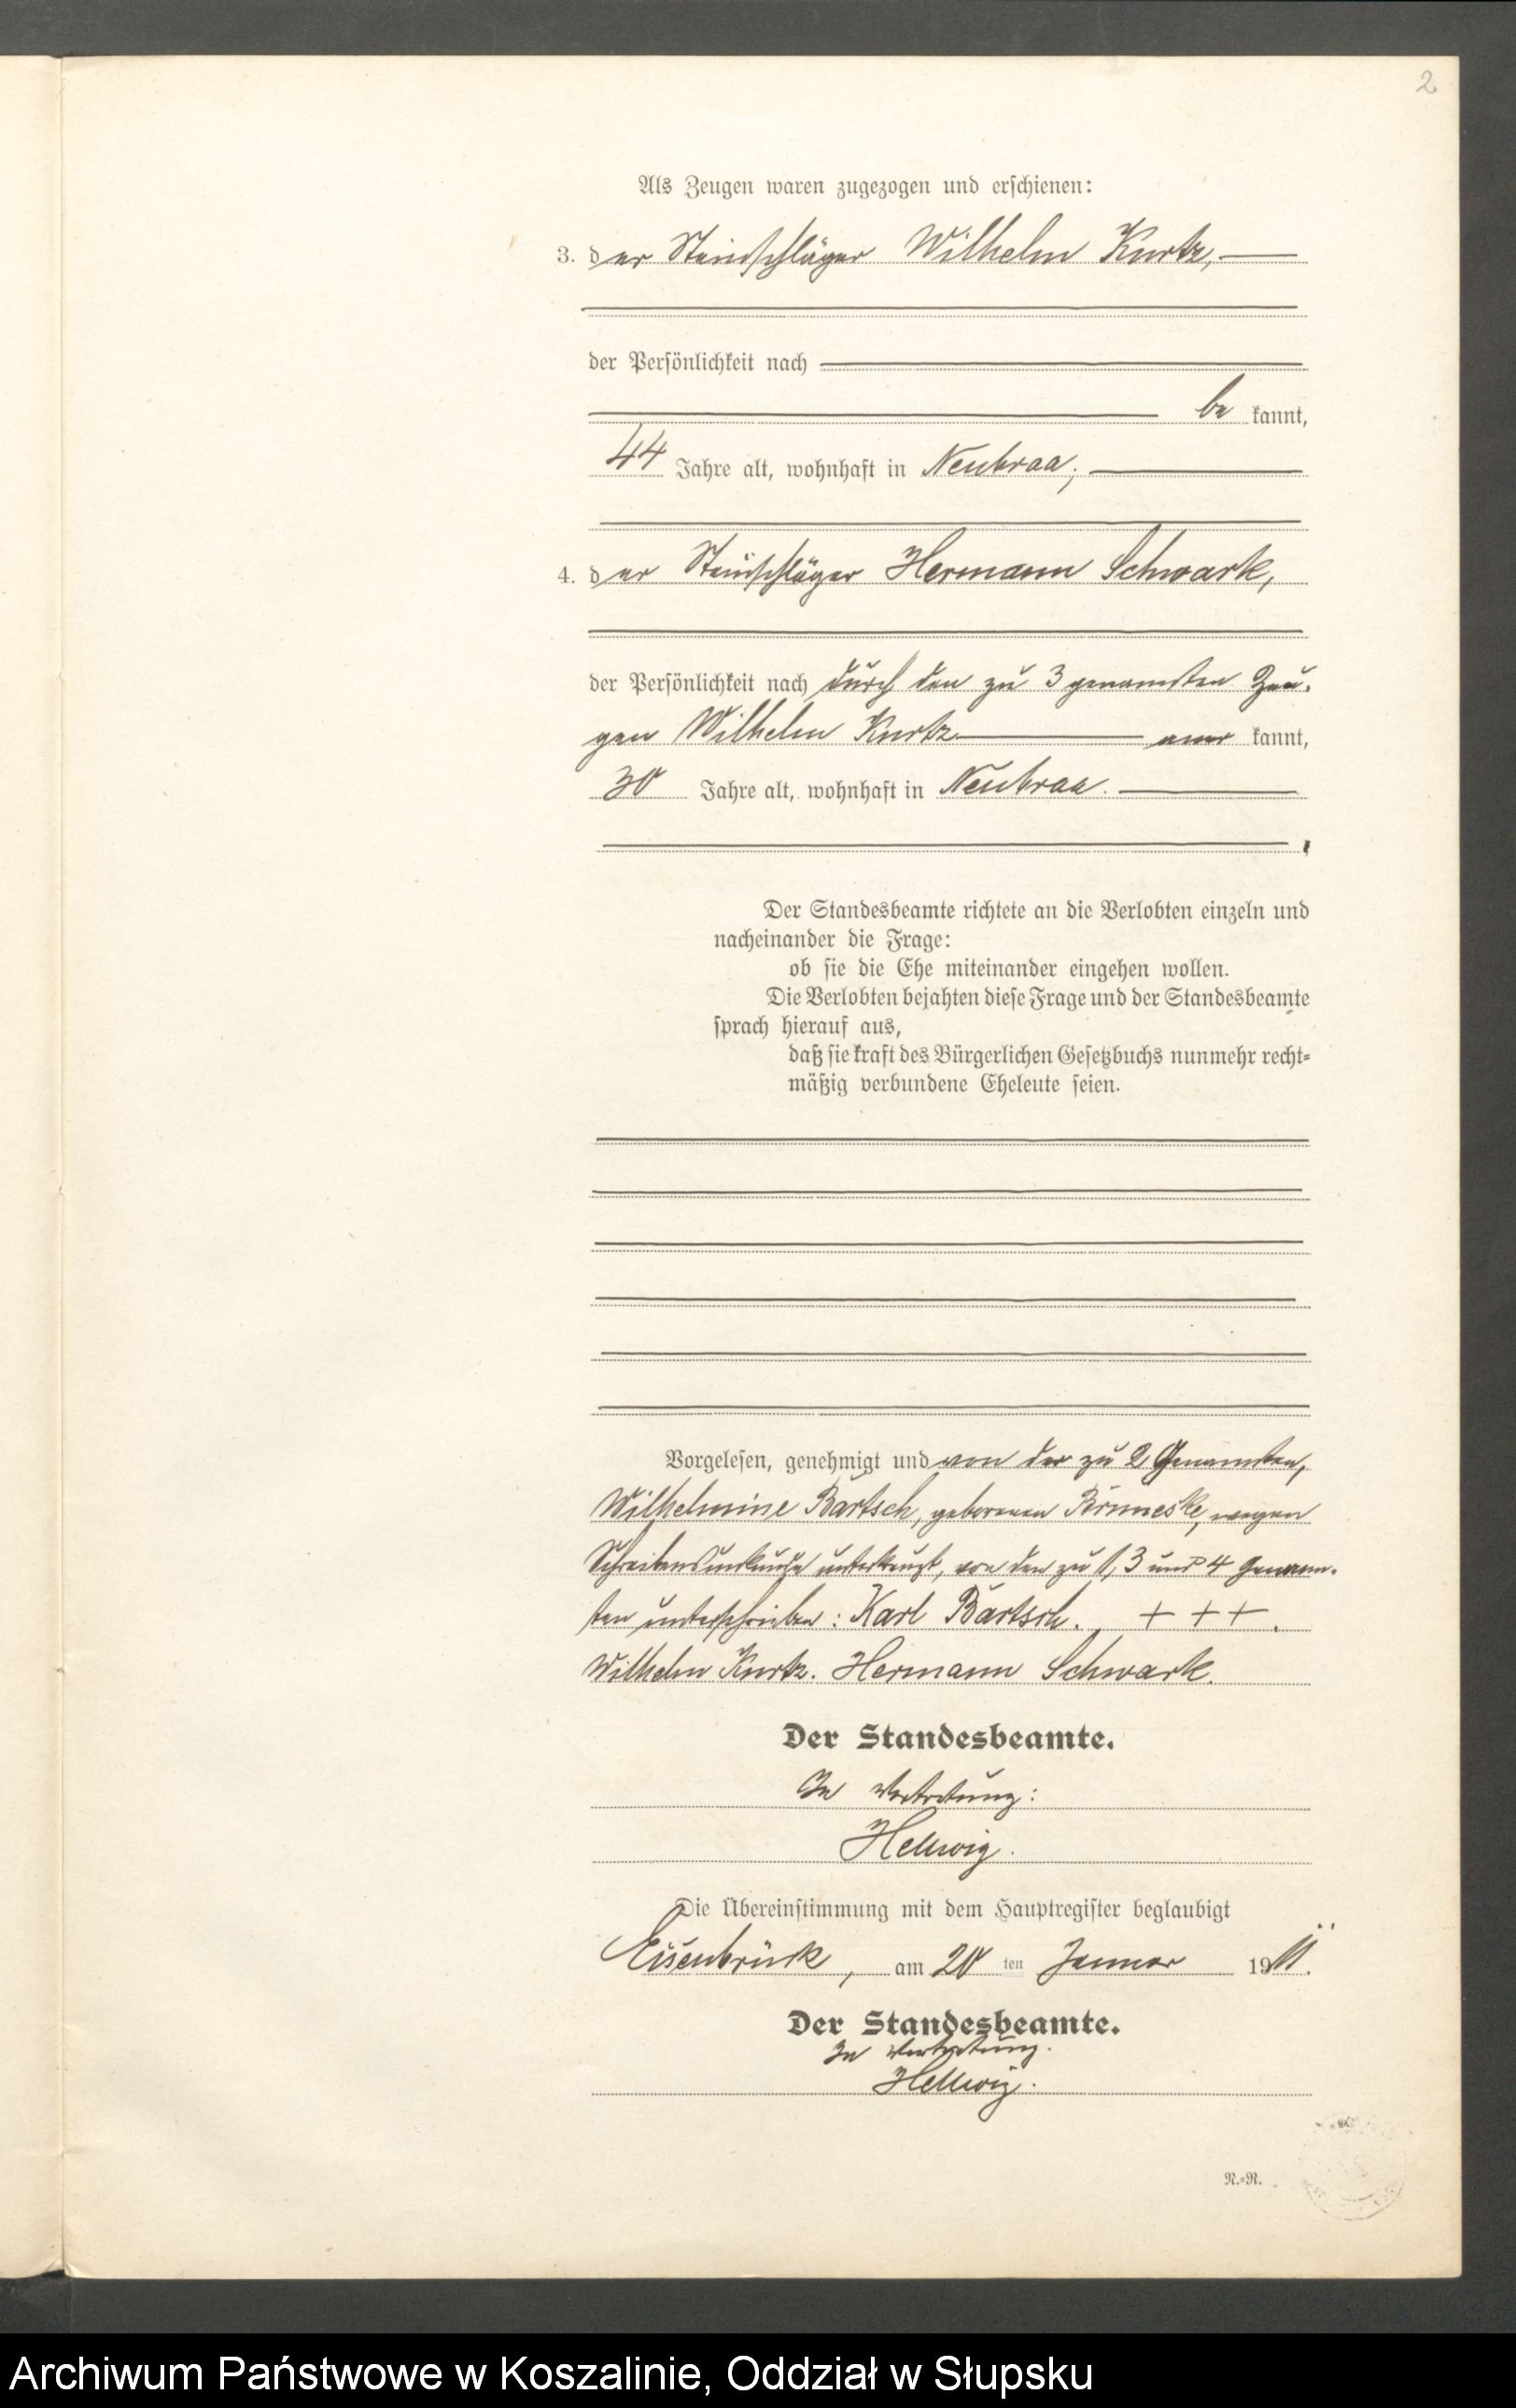 2
Als Zeugen waren zugezogen und erschienen:
3. der Steinschläger Wilhelm Kurtz,
der Persönlichkeit nach
be kannt,
44 Jahre alt, wohnhaft in Neubraa;
4. der Steinschläger Hermann Schwark,
der Persönlichkeit nach durch den zu 3 genannten Zeu-
gen Wilhelm Kurtz aner kannt,
30 Jahre alt, wohnhaft in Neubraa.
Der Standesbeamte richtete an die Verlobten einzeln und
nacheinander die Frage:
ob sie die Ehe miteinander eingehen wollen.
Die Verlobten bejahten diese Frage und der Standesbeamte
sprach hierauf aus,
daß sie kraft des Bürgerlichen Gesetzbuchs nunmehr recht-
mäßig verbundene Eheleute seien.
Vorgelesen, genehmigt und von der zu 2 Genannten,
Wilhelmine Bartsch, geborenen Brümeske, wegen
Schreibensunkunde unterkreuzt, von den zu 1, 3 und 4 Genann-
ten unterschrieben: Karl Bartsch. + + +.
Wilhelm Kurtz. Hermann Schwark.
Der Standesbeamte.
In Vertretung:
Hellwig.
Die Übereinstimmung mit dem Hauptregister beglaubigt
Eisenbrück, am 20 ten Januar 1911.
Der Standesbeamte.
In Vertretung.
Hellwig.
N.-R.
Archiwum Państwowe w Koszalinie, Oddział w Słupsku